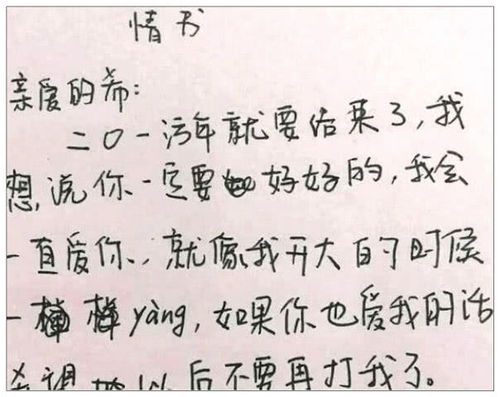 情书
亲爱的希:
二0一污年就要结束了,我
想,说你一定要好好的,我会
一直爱你.,就像我开大自的时候
一样yàng,如果你也爱我的话
以后不要再打我了。